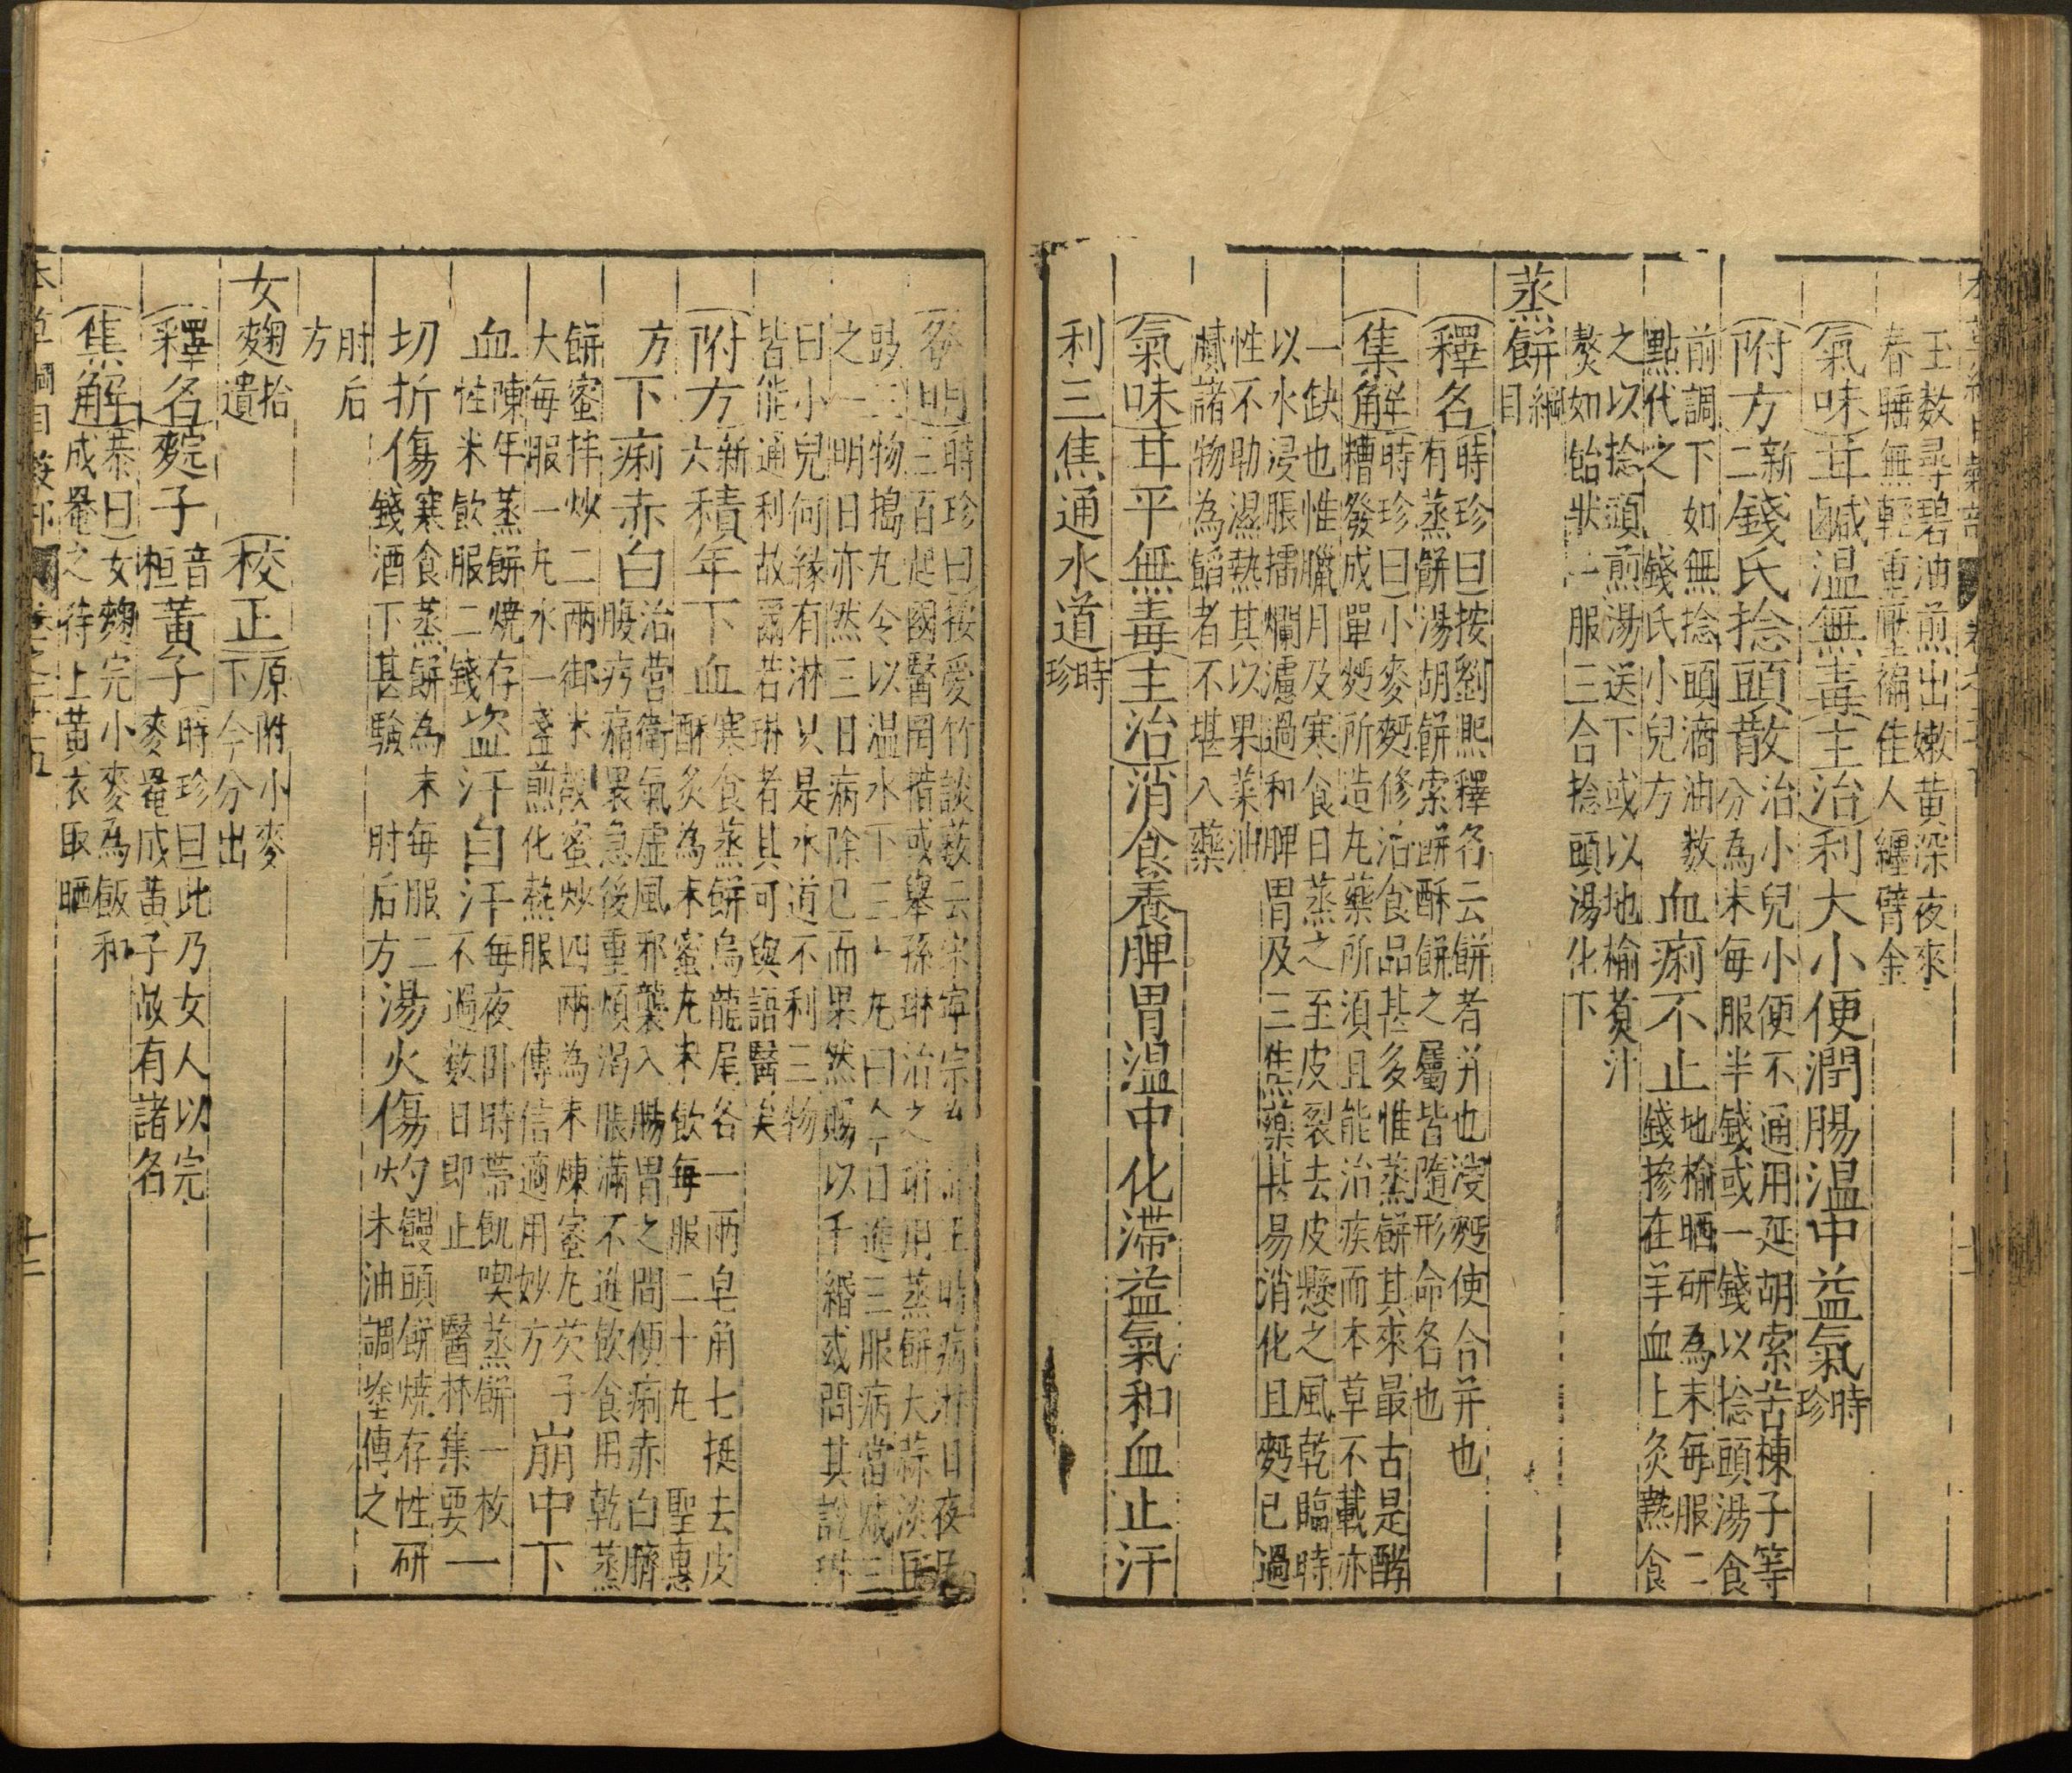 玉数尋碧油煎出嫩黄深夜來
春睡無輕重壓褊佳人纏臂金
氣味甘鹹温無毒主治利大小便潤腸温中益氣時珍
附方新二錢氏捻頭散治小兒小便不通用延胡索苦楝子等
分為末每服半錢或一錢以捻頭湯食
前調下如無捻頭滴油数
點代之錢氏小兒方血痢不止地榆晒研為末每服二
錢摻在羊血上灸熱食
之以捻頭煎湯送下或以地榆煑汁
熬如飴狀一服三合捻頭湯化下
蒸餅綱目
釋名時珍曰按劉熙釋名云餅者并也溲麪使合并也
有蒸餅湯餅胡餅索餅酥餅之屬皆隨形命名也
集解時珍曰小麥麪修治食品甚多惟蒸餅其來最古是酵
糟發成單麪所造丸藥所須且能治疾而本草不載亦
一缺也惟臘月及寒食日蒸之至皮裂去皮懸之風乾臨時
以水浸脹擂爛濾過和脾胃及三焦藥甚易消化且麪已過
性不助濕熱其以果菜油
膩諸物為餡者不堪入藥
氣味甘平無毒主治消食養脾胃温中化滯益氣和血止汗
利三焦通水道時珍
發明時珍曰按愛竹談薮云宋寧宗為 王時病淋日夜凡
三百起國醫罔措或舉孫琳治之琳用蒸餅大蒜淡豆
豉三物搗丸令以温水下三十丸曰今日進三服病當减三
之一明日亦然三日病除已而果然賜以千緡或問其說琳
曰小兒何緣有淋以是水道不利三物
皆能通利故爾若琳者其可與語醫矣
附方新六積年下血寒食蒸餅烏龍尾各一兩皂角七挺去皮
酥灸為末蜜丸米飲每服二十丸聖惠
方下痢赤白治營衛氣虛風邪襲入腸胃之間便痢赤白臍
腹㽲痛裏急後重煩渴脹滿不進飲食用乾蒸
餅蜜拌炒二兩御米殼蜜炒四兩為末煉蜜丸芡子
大每服一丸水一盞煎化熱服傳信適用妙方崩中下
血陳年蒸餅燒存
性米飲服二錢盜汗自汗每夜卧時帶飢喫蒸餅一枚
不過数日即止醫林集要一
切折傷寒食蒸餅為末每服二
錢酒下甚驗肘后方湯火傷灼饅頭餅燒存性研
末油調塗傅之
肘后
方
女麴拾遺校正原附小麥
下今分出
釋名䴷子音桓黃子時珍曰此乃女人以完
麥罨成黃子故有諸名
集解恭曰女麴完小麥為飯和
成罨之待上黃衣取晒